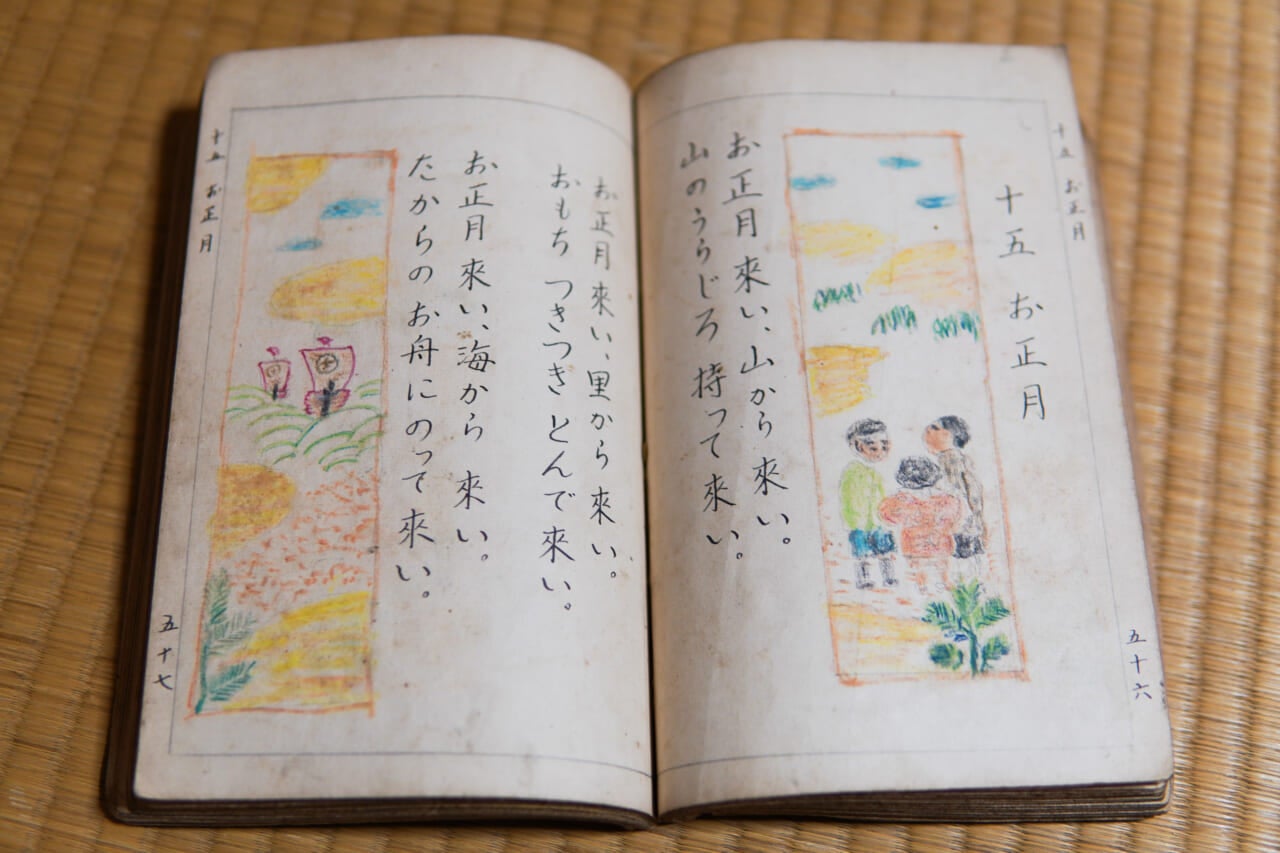 十五 お正月
十五 お正月
お正月來い、山から來い。
山のうらじろ持って來い。
五十六
お正月來い、里から來い。
おもち つきつき とんで來い。
お正月 來い、海から 來い。
たからの お舟に のって 來い。
十五 お正月
五十七